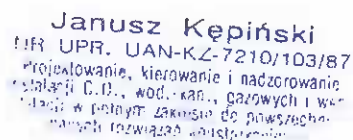 Janusz Kępiński
NR UPR. UAN-KZ-7210/103/87
Projektowanie, kierowanie i nadzorowanie
instalacji C.O., wod.-kan., gazowych i
w pełnym zakresie do powszechnie
rozwiązań